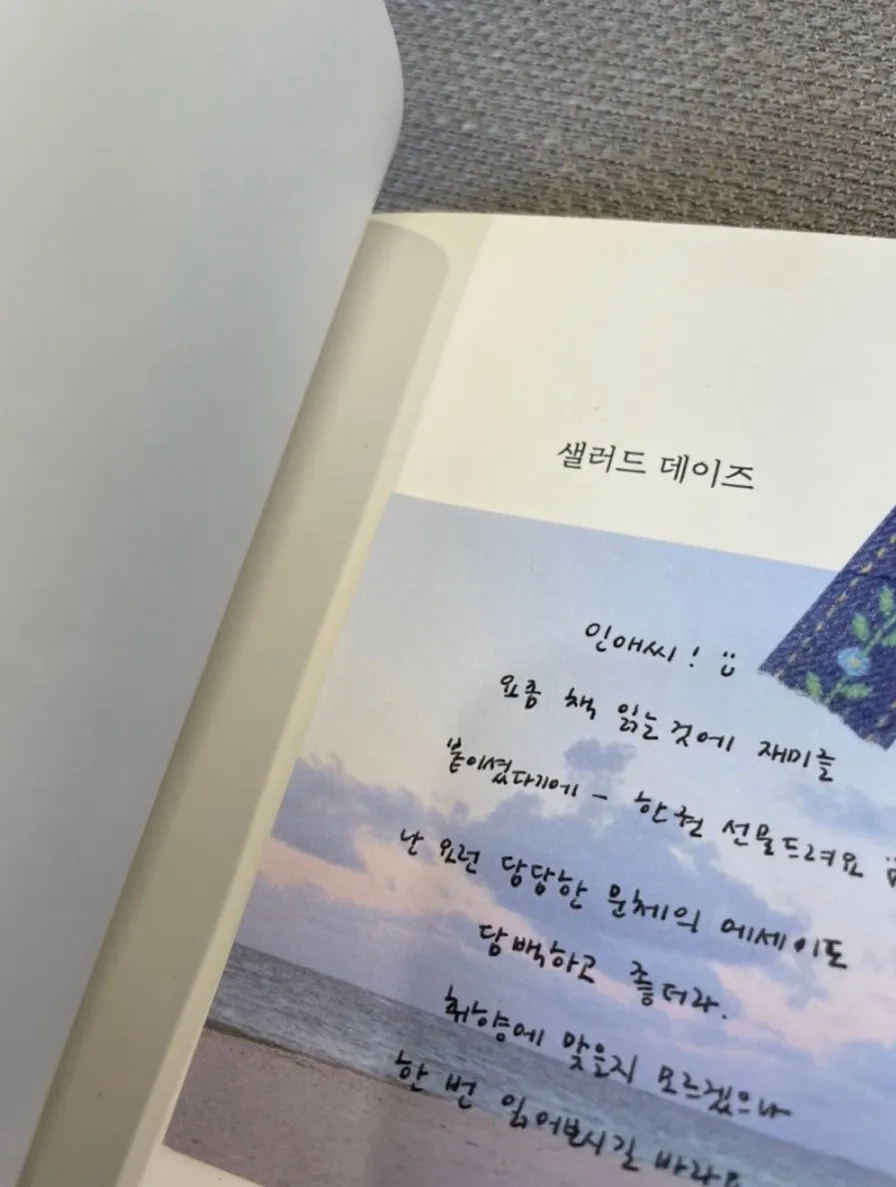 샐러드 데이즈
인애씨! :)
요즘 책 읽는 것에 재미를
붙이셨다기에 - 한권 선물드려요 :)
난 요런 담담한 문체의 에세이도
담백하고 좋더라.
취향에 맞을지 모르겠으나
한 번 읽어보시길 바라요